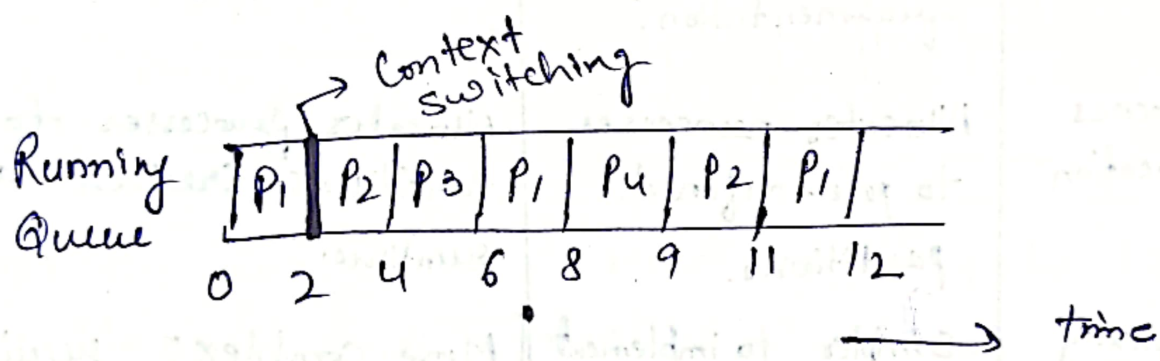 Context
switching
Running
Queue
P1 P2 P3 P1 P4 P2 P1
0 2 4 6 8 9 11 12
time